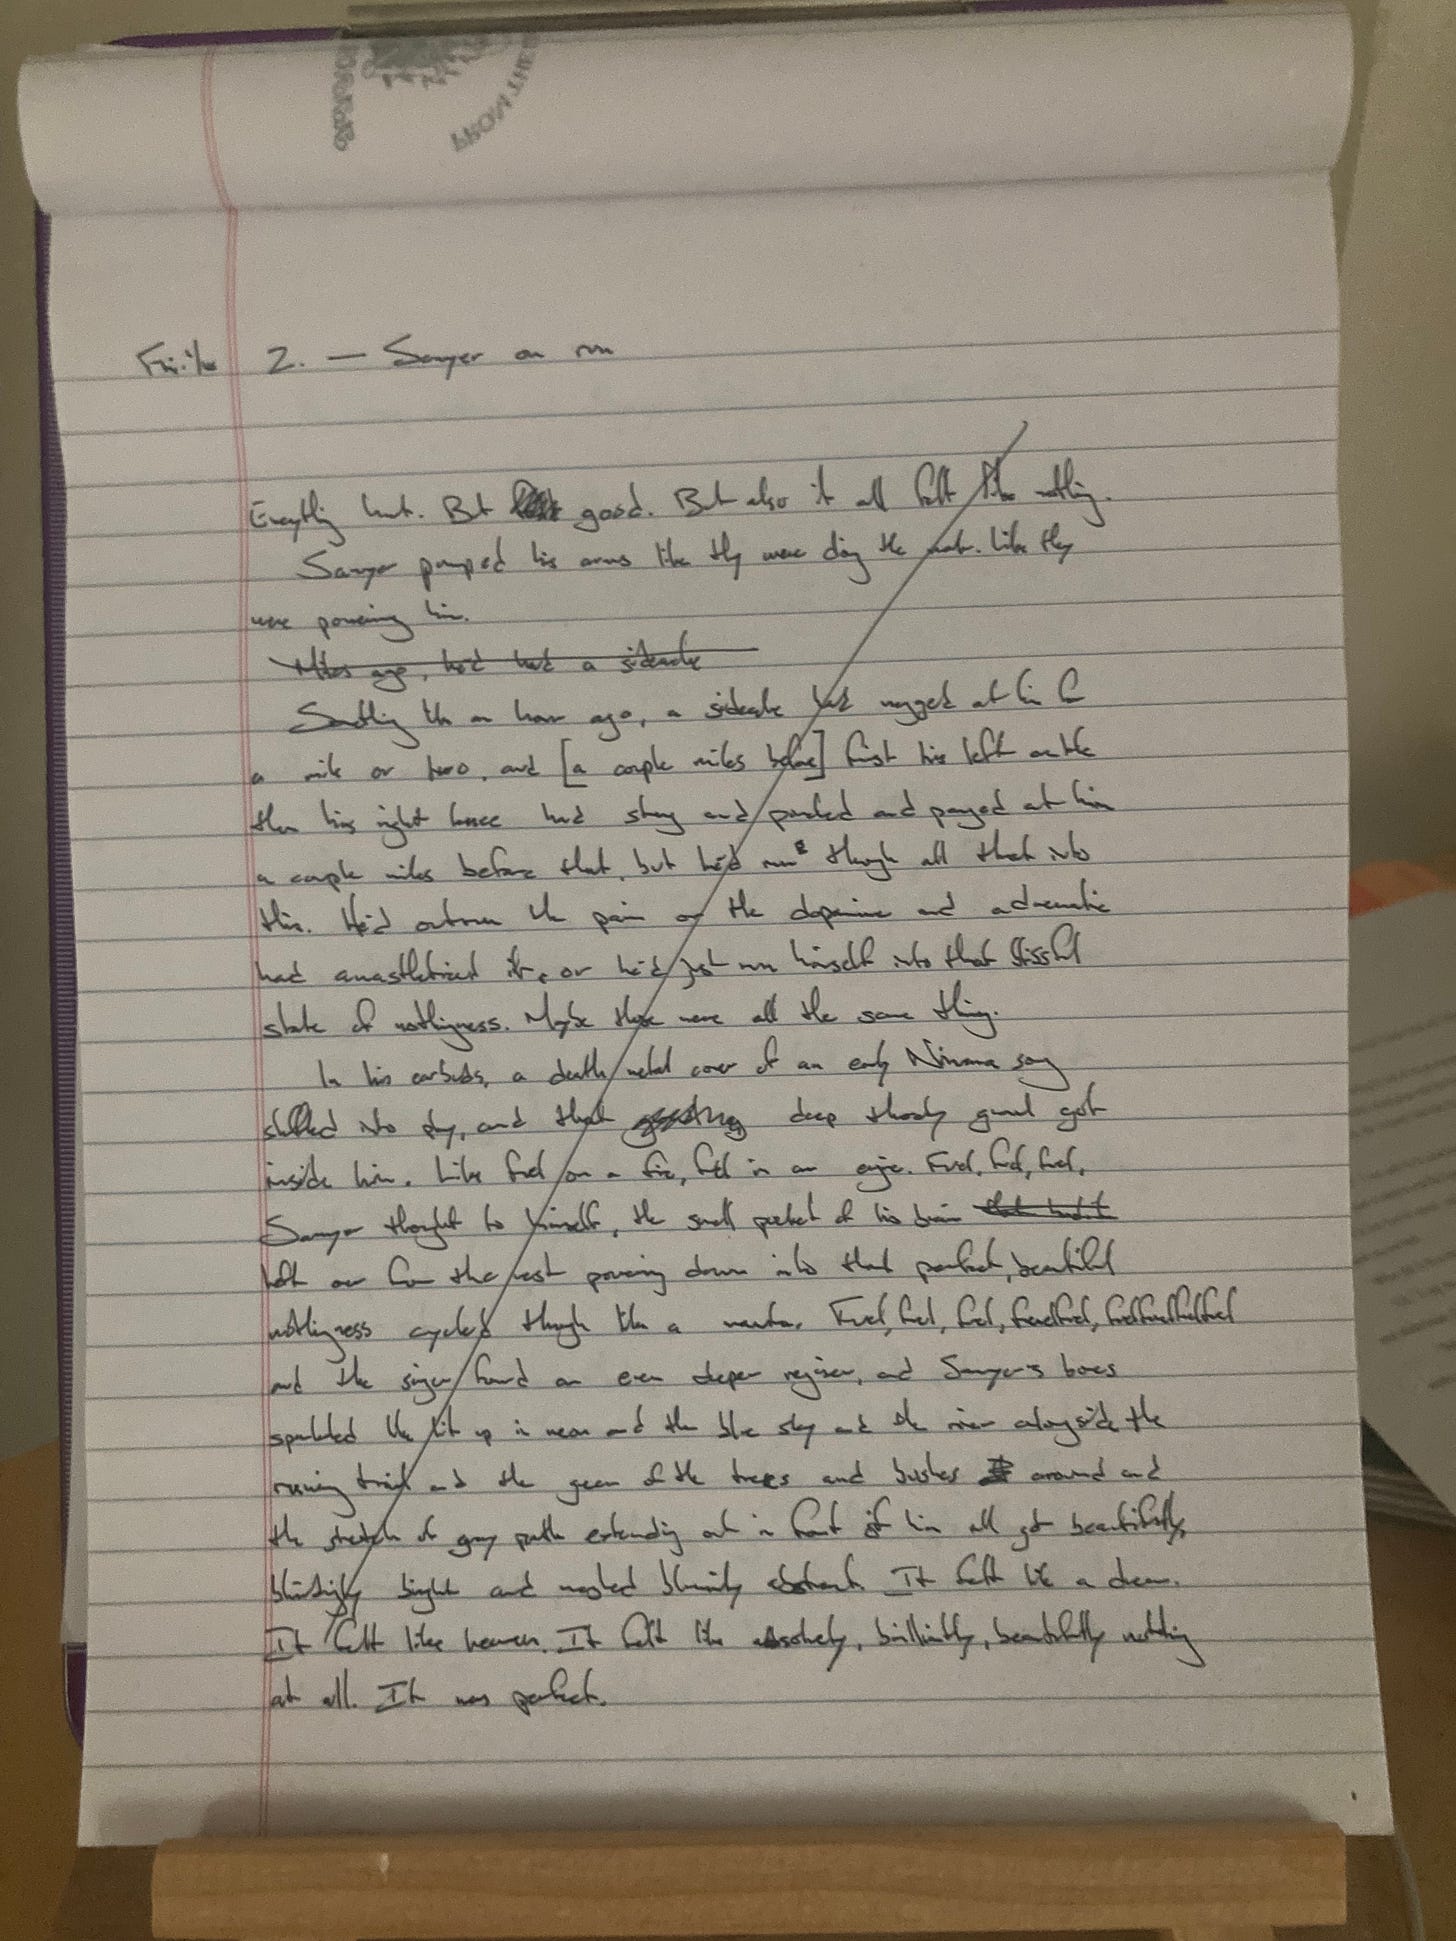 2. — Sawyer on run
Everything hurt. But good. But also it all felt like nothing.
Sawyer pumped his arms like they were doing the work. Like they
were powering him.
Miles ago, he'd had a sideache
Something like an hour ago, a sideache had nagged at him for
a mile or two, and [a couple miles before] first his left ankle
then his right knee had stung and and panged at him
a couple miles before that, but he'd run through all that into
this. He'd outrun the pain or the dopamine and adrenaline
had anaesthetized it, or he'd just run himself into that blissful
state of nothingness. Maybe those were all the same thing.
In his earbuds, a death metal cover of an early Nirvana song
shuffled into play, and that deep throaty growl got
inside him. Like fuel on a fire, fuel in an engine. Fuel, fuel, fuel,
Sawyer thought to himself, the small pocket of his brain
left over from the rest powering down into that perfect, beautiful
nothingness cycled through like a mantra. Fuel, fuel, fuel, fuelfuel, fuelfuelfuelfuel
and the singer found an even deeper register, and Sawyer's bones
sparkled like lit up in neon and the blue sky and the river alongside the
running trail and the green of the trees and bushes around and
the stretch of gray path extending out in front of him all got beautifully,
blindingly bright and abstract. It felt like a dream.
It felt like heaven. It felt like absolutely, brilliantly, beautifully nothing
at all. It was perfect.